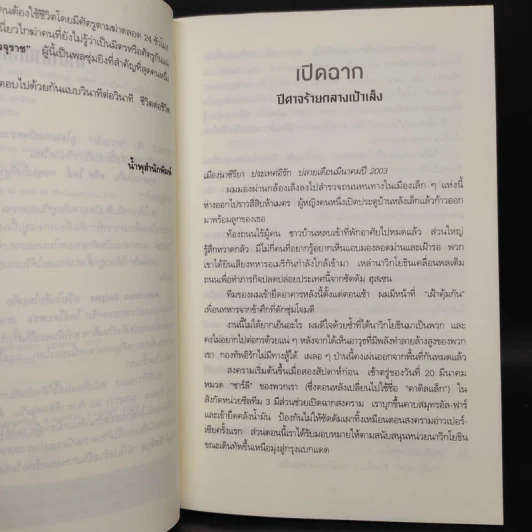 คนต้องใช้ชีวิตโดยมีศัตรูตามฆ่าตลอด 24 ชั่วโมง
เนี่ยวไกฆ่าคนที่ยังไม่รู้ว่าเป็นมิตรหรือศัตรูกันแน่
จุราช" ผู้นี้เป็นพลซุ่มยิงที่สำคัญที่สุดคนหนึ่ง
ตอบไปด้วยกันแบบวินาทีต่อวินาที ชีวิตต่อชีวิต
น้ำพุสำนักพิมพ์
เปิดฉาก
ปีศาจร้ายกลางเป้าเล็ง
เมืองนาซีริยา ประเทศอิรัก ปลายเดือนมีนาคมปี 2003
ผมมองผ่านกล้องเล็งลงไปสำรวจถนนหนทางในเมืองเล็ก ๆ แห่งนี้
ห่างออกไปราวสี่สิบห้าเมตร ผู้หญิงคนหนึ่งเปิดประตูบ้านหลังเล็กแล้วก้าวออก
มาพร้อมลูกของเธอ
ท้องถนนไร้ผู้คน ชาวบ้านหลบเข้าที่พักอาศัยไปหมดแล้ว ส่วนใหญ่
รู้สึกหวาดกลัว มีไม่กี่คนที่อยากรู้อยากเห็นแอบมองลอดม่านและเฝ้ารอ พวก
เขาได้ยินเสียงทหารอเมริกันกำลังใกล้เข้ามา เหล่านาวิกโยธินเคลื่อนพลเต็ม
ถนนเพื่อทำภารกิจปลดปล่อยประเทศนี้จากซัดดัม ฮุสเซน
ทีมของผมเข้ายึดอาคารหลังนี้ตั้งแต่ตอนเช้า ผมมีหน้าที่ "เฝ้าคุ้มกัน"
เพื่อนทหารจากข้าศึกที่ดักซุ่มโจมตี
งานนี้ไม่ได้ยากเย็นอะไร ผมดีใจด้วยซ้ำที่ได้นาวิกโยธินมาเป็นพวก และ
คงไม่อยากไปต่อกรด้วยแน่ ๆ หลังจากได้เห็นอาวุธที่มีพลังทำลายล้างสูงของพวก
เขา กองทัพอิรักไม่มีทางสู้ได้ เผลอ ๆ ป่านนี้คงเผ่นออกจากพื้นที่กันหมดแล้ว
สงครามเริ่มต้นขึ้นเมื่อสองสัปดาห์ก่อน เช้าตรู่ของวันที่ 20 มีนาคม
หมวด "ชาร์ลี" ของพวกเรา (ซึ่งตอนหลังเปลี่ยนไปใช้ชื่อ "คาดิลแล็ก") ใน
สังกัดหน่วยซีลทีม 3 มีส่วนช่วยเปิดฉากสงคราม เราบุกขึ้นคาบสมุทรอัล-ฟาร์
และเข้ายึดคลังน้ำมัน ป้องกันไม่ให้ซัดดัมเผาทิ้งเหมือนตอนสงครามอ่าวเปอร์-
เซียครั้งแรก ส่วนตอนนี้เราได้รับมอบหมายให้ตามสนับสนุนหน่วยนาวิกโยธิน
ขณะเดินทัพขึ้นเหนือมุ่งสู่กรุงแบกแดด